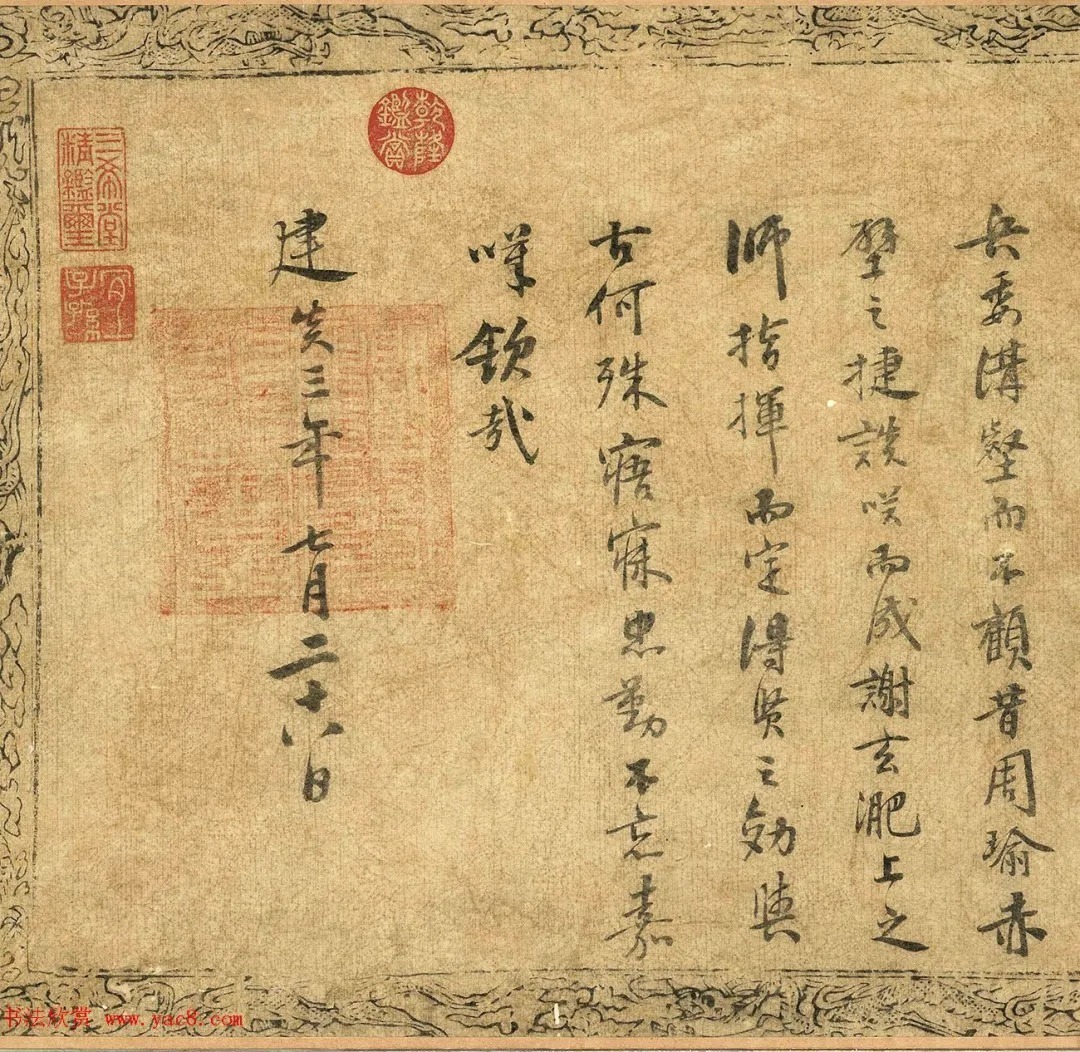 兵委溝壑而不顧昔周瑜赤
壁之捷談咲而成謝玄淝上之
师指揮而定得賢之効與
古何殊寤寐忠勤不忘嘉
嘆欽哉
建炎三年七月二十八日
乾隆鑑賞
三希堂精鑑璽
宜子孫
书法欣赏 www.yac8.com